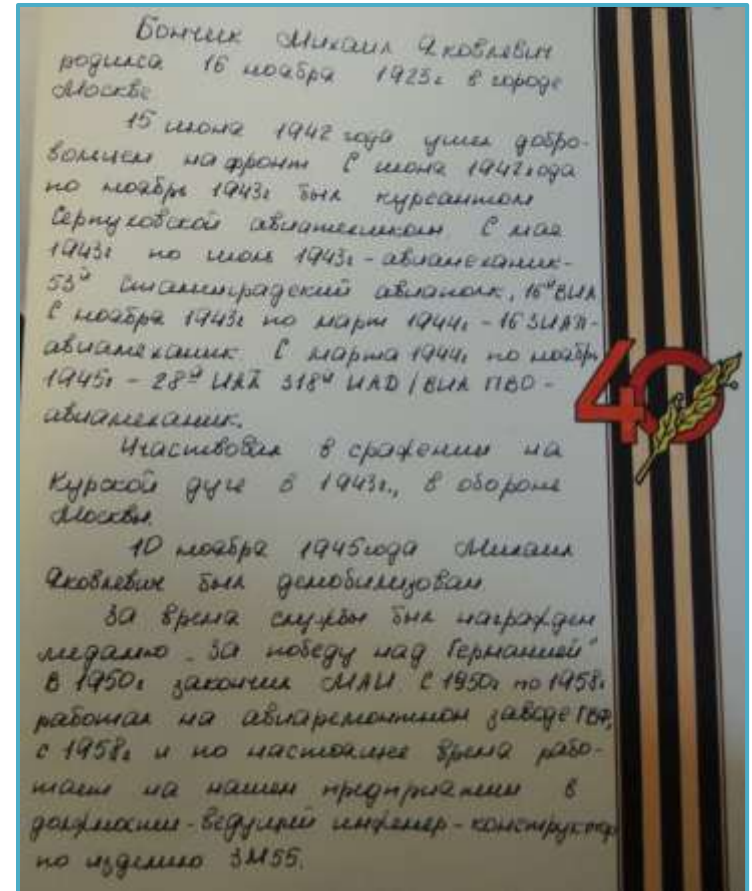 Бончик Михаил Яковлевич
родился 16 ноября 1923г в городе
Москве
15 июня 1942 года ушел добро-
вольцем на фронт С июня 1942 года
по ноябрь 1943г был курсантом
Серпуховской авиатехшколы. С мая
1943г по июль 1943г - авиамеханик -
53й Сталинградский авиаполк, 16й ВИА
С ноября 1943г по март 1944г - 16 ЗИАП-
авиамеханик. С марта 1944г по ноябрь
1945г - 28й ИАП 318й ИАД / ВИА ПВО -
авиамеханик.
Участвовал в сражении на
Курской дуге в 1943г., в обороне
Москвы.
10 ноября 1945 года Михаил
Яковлевич был демобилизован.
За время службы был награжден
медалью „За победу над Германией"
В 1950г закончил МАИ С 1950г по 1958г
работал на авиаремонтном заводе ГВФ,
с 1958г и по настоящее время рабо-
тает на нашем предприятии в
должности - ведущий инженер - конструктор
по изделию 3М55.
40